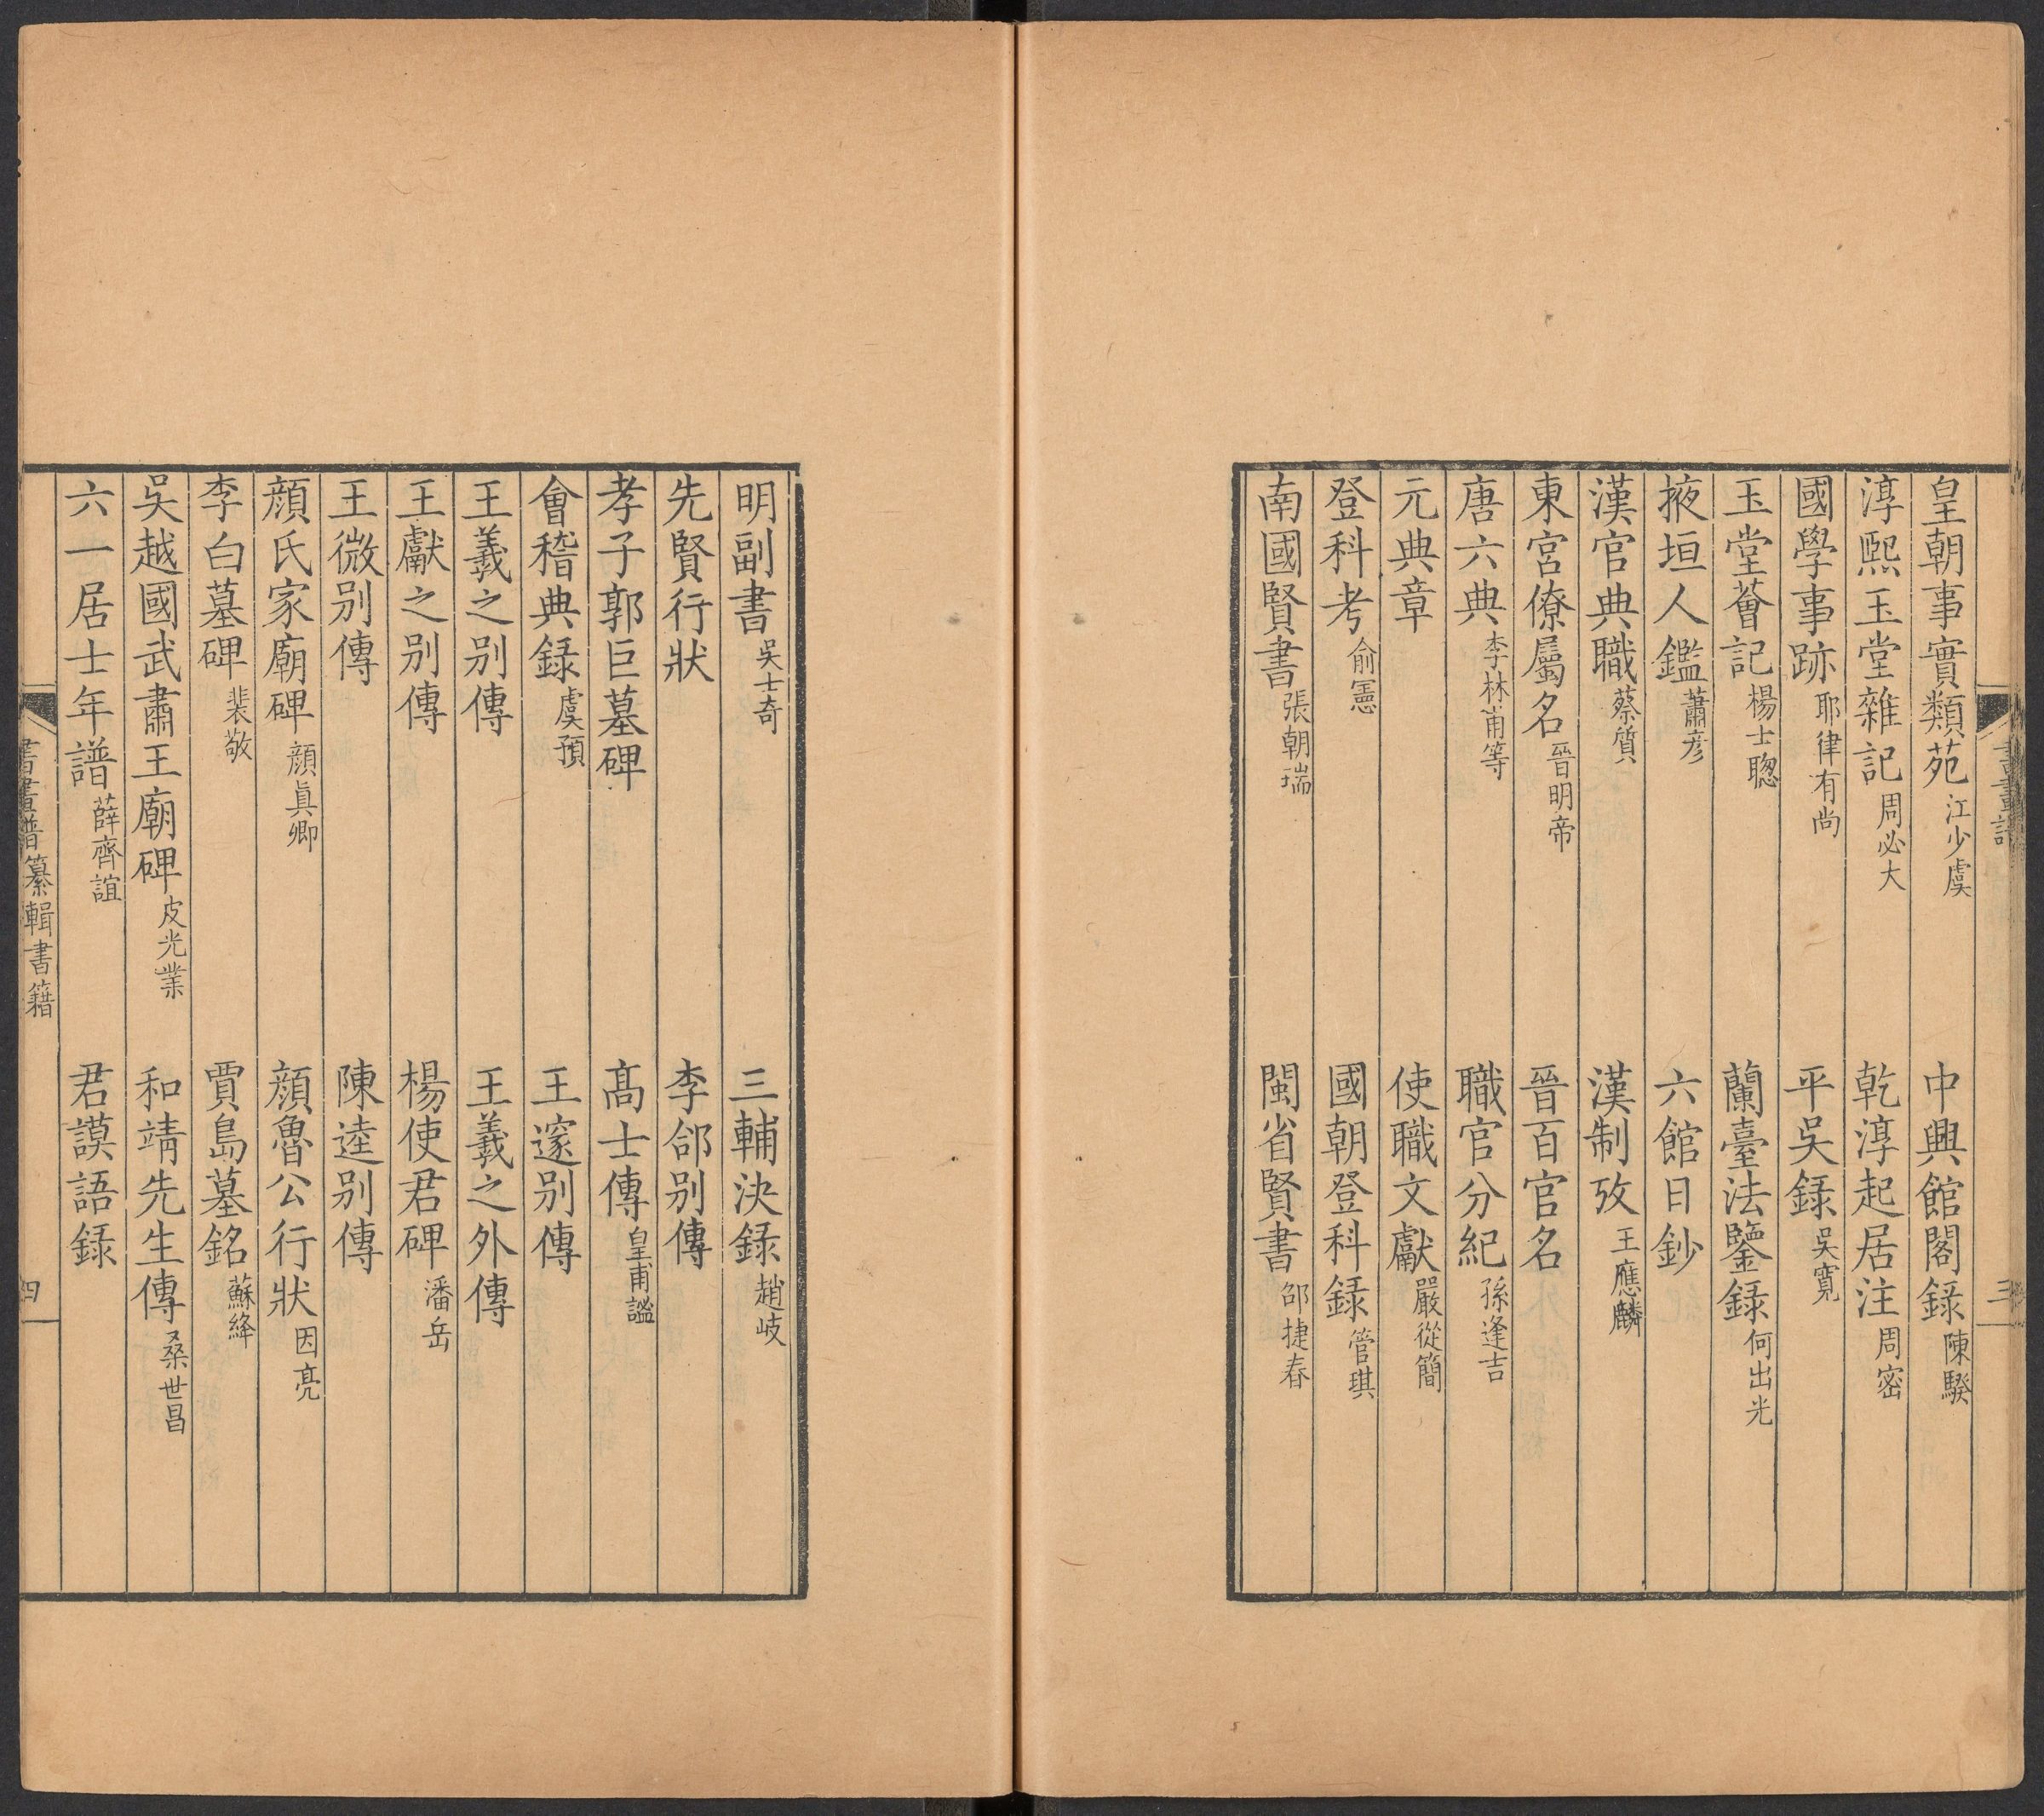 皇朝事實類苑 江少虞 中興館閣錄 陳騤
淳熙玉堂雜記 周必大 乾淳起居注 周密
國學事跡 耶律有尚 平吳録 吳寬
玉堂薈記 楊士聰 蘭臺法鑒録 何出光
掖垣人鑑 蕭彥 六館日鈔
漢官典職 蔡質 漢制攷 王應麟
東宮僚屬名 晉明帝 晉百官名
唐六典 李林甫等 職官分紀 孫逢吉
元典章 使職文獻 嚴從簡
登科考 俞憲 國朝登科録 管琪
南國賢書 張朝瑞 閩省賢書 邵捷春
明副書 吳士奇 三輔決録 趙岐
先賢行狀 李郃别傳
孝子郭巨墓碑 髙士傳 皇甫謐
會稽典録 虞預 王邃别傳
王羲之别傳 王羲之外傳
王獻之别傳 楊使君碑 潘岳
王微别傳 陳逵别傳
顔氏家廟碑 顔眞卿 顔魯公行狀 因亮
李白墓碑 裴敬 賈島墓銘 蘇絳
吳越國武肅王廟碑 皮光業 和靖先生傳 桑世昌
六一居士年譜 薛齊誼 君謨語録
書畫譜纂輯書籍 四